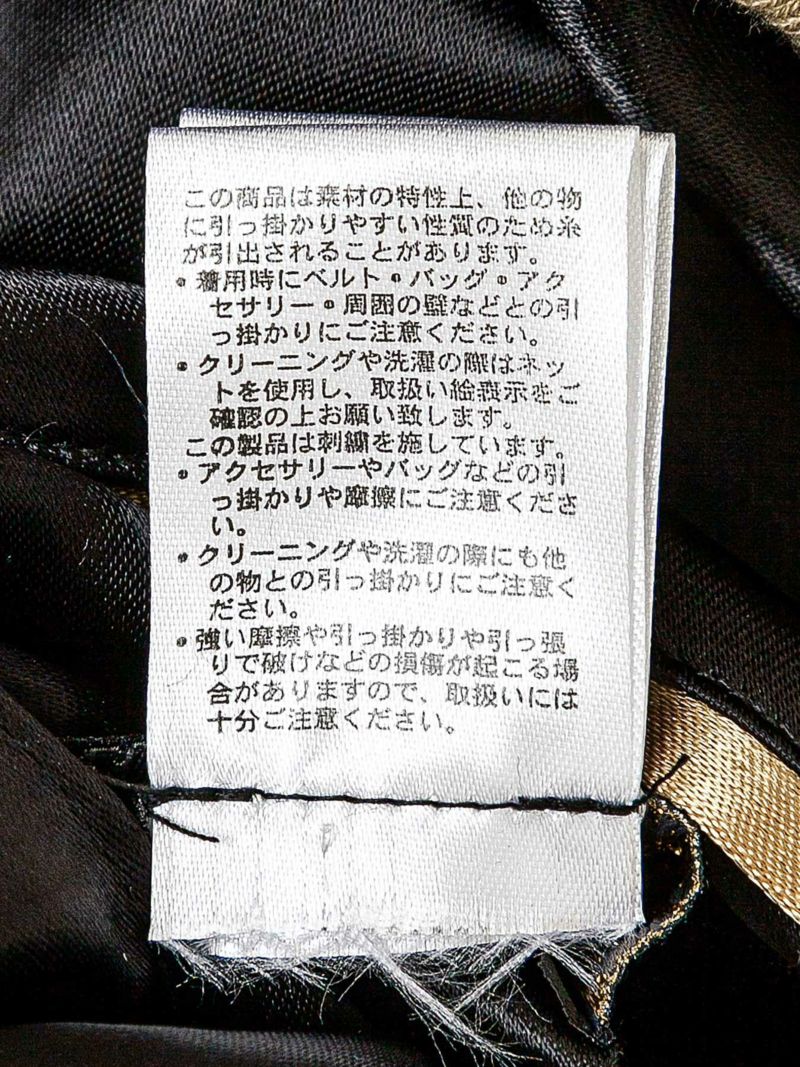 この商品は素材の特性上、他の物
に引っ掛かりやすい性質のため糸
が引出されることがあります。
・着用時にベルト・バッグ・アク
セサリー・周囲の壁などとの引
っ掛かりにご注意ください。
・クリーニングや洗濯の際はネッ
トを使用し、取扱い絵表示をご
確認の上お願い致します。
この製品は刺繍を施しています。
・アクセサリーやバッグなどの引
っ掛かりや摩擦にご注意くださ
い。
・クリーニングや洗濯の際にも他
の物との引っ掛かりにご注意く
ださい。
・強い摩擦や引っ掛かりや引っ張
りで破けなどの損傷が起こる場
合がありますので、取扱いには
十分ご注意ください。